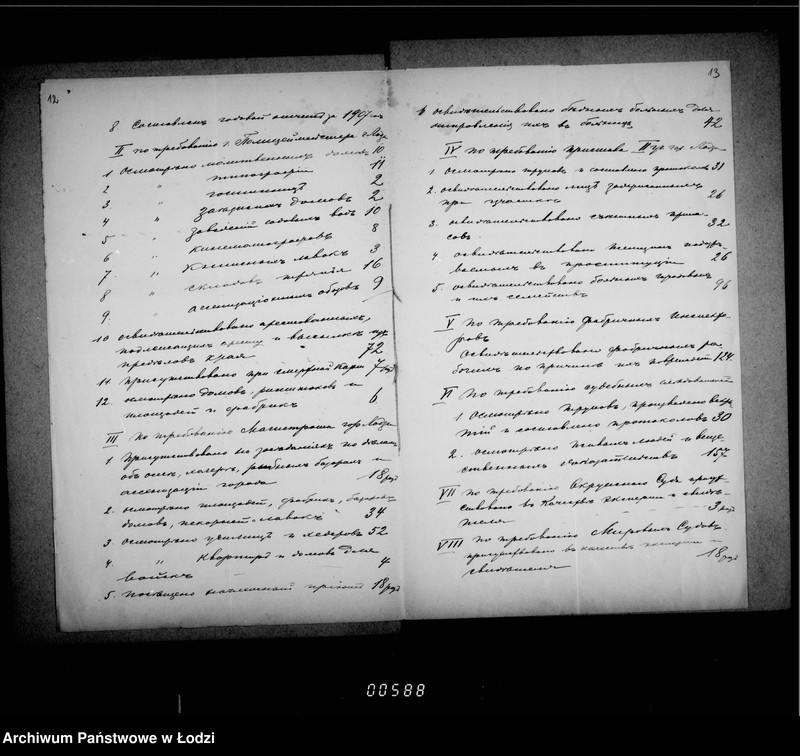 12
8 Составленъ годовой отчетъ за 190
II По требованію г. Полицеймейстера г. Лодзи
1 осмотрено молитвенныхъ домовъ 10
2 " типографіи 11
3 " гостинницъ 2
4 " заезжихъ домовъ 2
5 " заведеній содовыхъ водъ 10
6 " кинематографовъ 8
7. " лавокъ 3
8 " складовъ тряпья 16
9. " ассенизаціонныхъ обозовъ 9
10 освидетельствовано арестованныхъ,
подлежащихъ и высылке
пределовъ края 72
11 присутствовано при смертной казни 7 разъ
12. осмотрено домовъ, рынковъ и
площадей и фабрикъ 6
III По требованію Магистрата гор. Лодзи
1 присутствовано на заседаніяхъ по деламъ
базаровъ и
ассенизаціи города 18 разъ
2. осмотрено площадей, фабрикъ,
домовъ, лавокъ 34
3. осмотрено училищъ и хедеровъ 52
4. " Квартиръ и домовъ для
войскъ 4
5. посещено пріютъ 18 разъ
13
6 освидетельствовано больныхъ для
отправленія ихъ въ больницу 42
IV По требованію пристава II уч. гор. Лодзи
1. осмотрено труповъ и составлено протоколовъ 31
2. освидетельствовано лицъ задержанныхъ
при участкахъ 26
3. освидетельствовано съестныхъ припа-
совъ 32
4. освидетельствовано женщинъ
въ проституціи 26
5. освидетельствовано больныхъ городовыхъ
и ихъ семействъ 96
V По требованію Фабричныхъ Инспекто-
ровъ
Освидетельствовано фабричныхъ ра-
бочихъ по причине ихъ поврежденій 124
VI По требованію судебныхъ следователей
1 Осмотрено труповъ, произведено вскры-
тій и составлено протоколовъ 30
2. осмотрено живыхъ людей и веще-
ственныхъ доказательствъ 157
VII По требованію Окружного Суда присут-
ствовано въ качестве эксперта и свиде-
теля 3 разъ
VIII По требованію Мировыхъ Судовъ
присутствовано въ качестве эксперта и
свидетеля 18 разъ
00588
Archiwum Państwowe w Łodzi